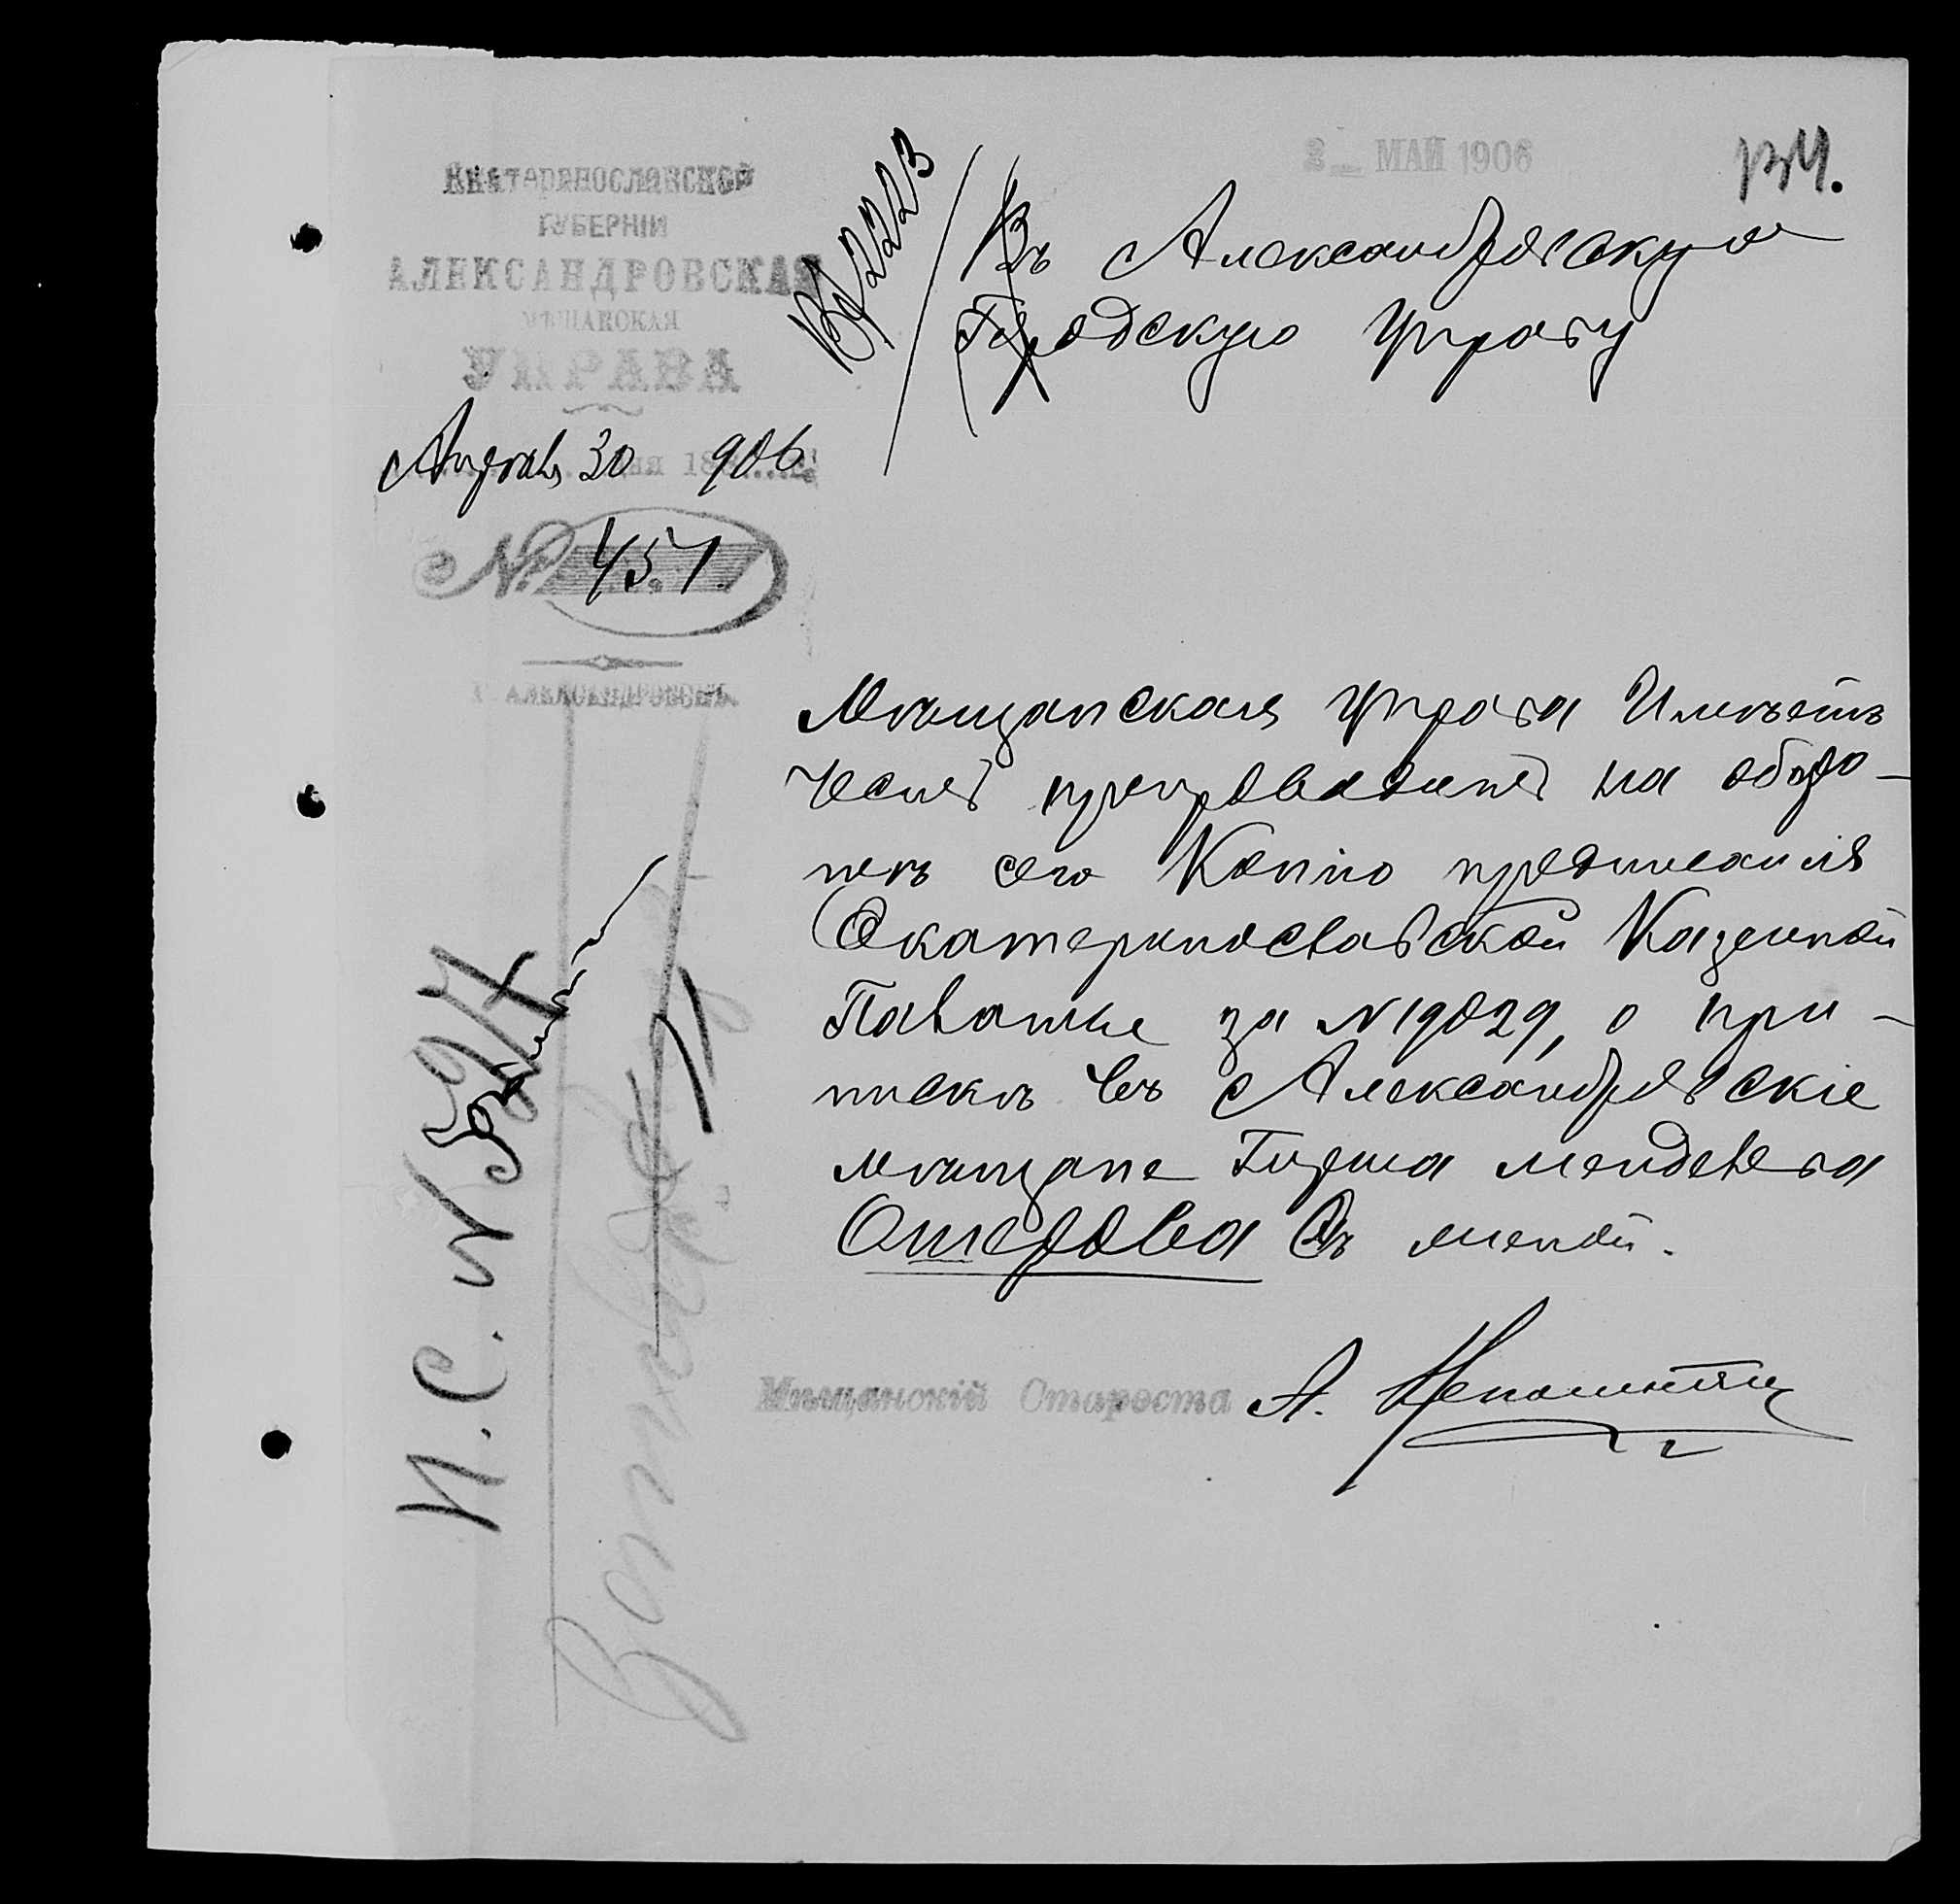 Екатеринославской
ГУБЕРНІИ
АЛЕКСАНДРОВСКАЯ
МѢЩАНСКАЯ
УПРАВА
Апрѣля 30 дня 1906
№ 457.
Г. АЛЕКСАНДРОВСКЪ
2223
2 МАЙ 1906
Въ Александровскую
Городскую Управу
Мѣщанская Управа Имѣетъ
честь препроводить на оборо-
тѣ сего Копію предписанія
Екатеринославской Казенной
Палаты за N 19029, о при-
пискѣ въ Александровскіе
мѣщане Гирша Менделева
Ошерова съ женой.
Мѣщанскій Староста А.
И. С. N 597